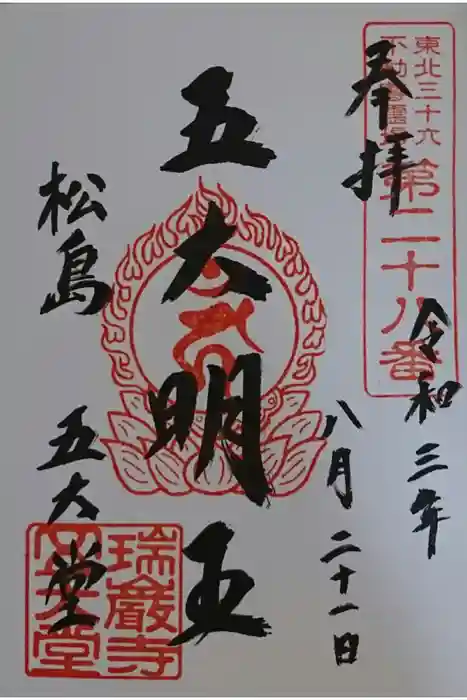 東北三十六
不動尊霊場
第二十八番
奉拝
令和三年
八月二十一日
五大明王
松島
五大堂
瑞巌寺
五大堂